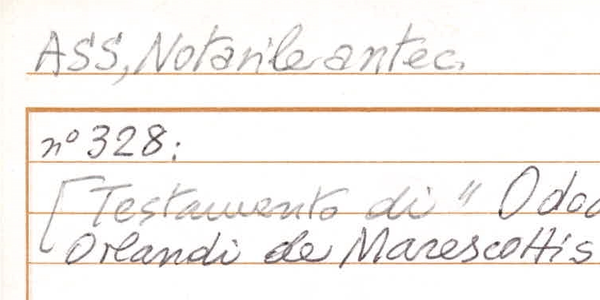 ASS, Notarile antec.
n° 328:
[Testamento di "Odoa
Orlandi de Marescottis